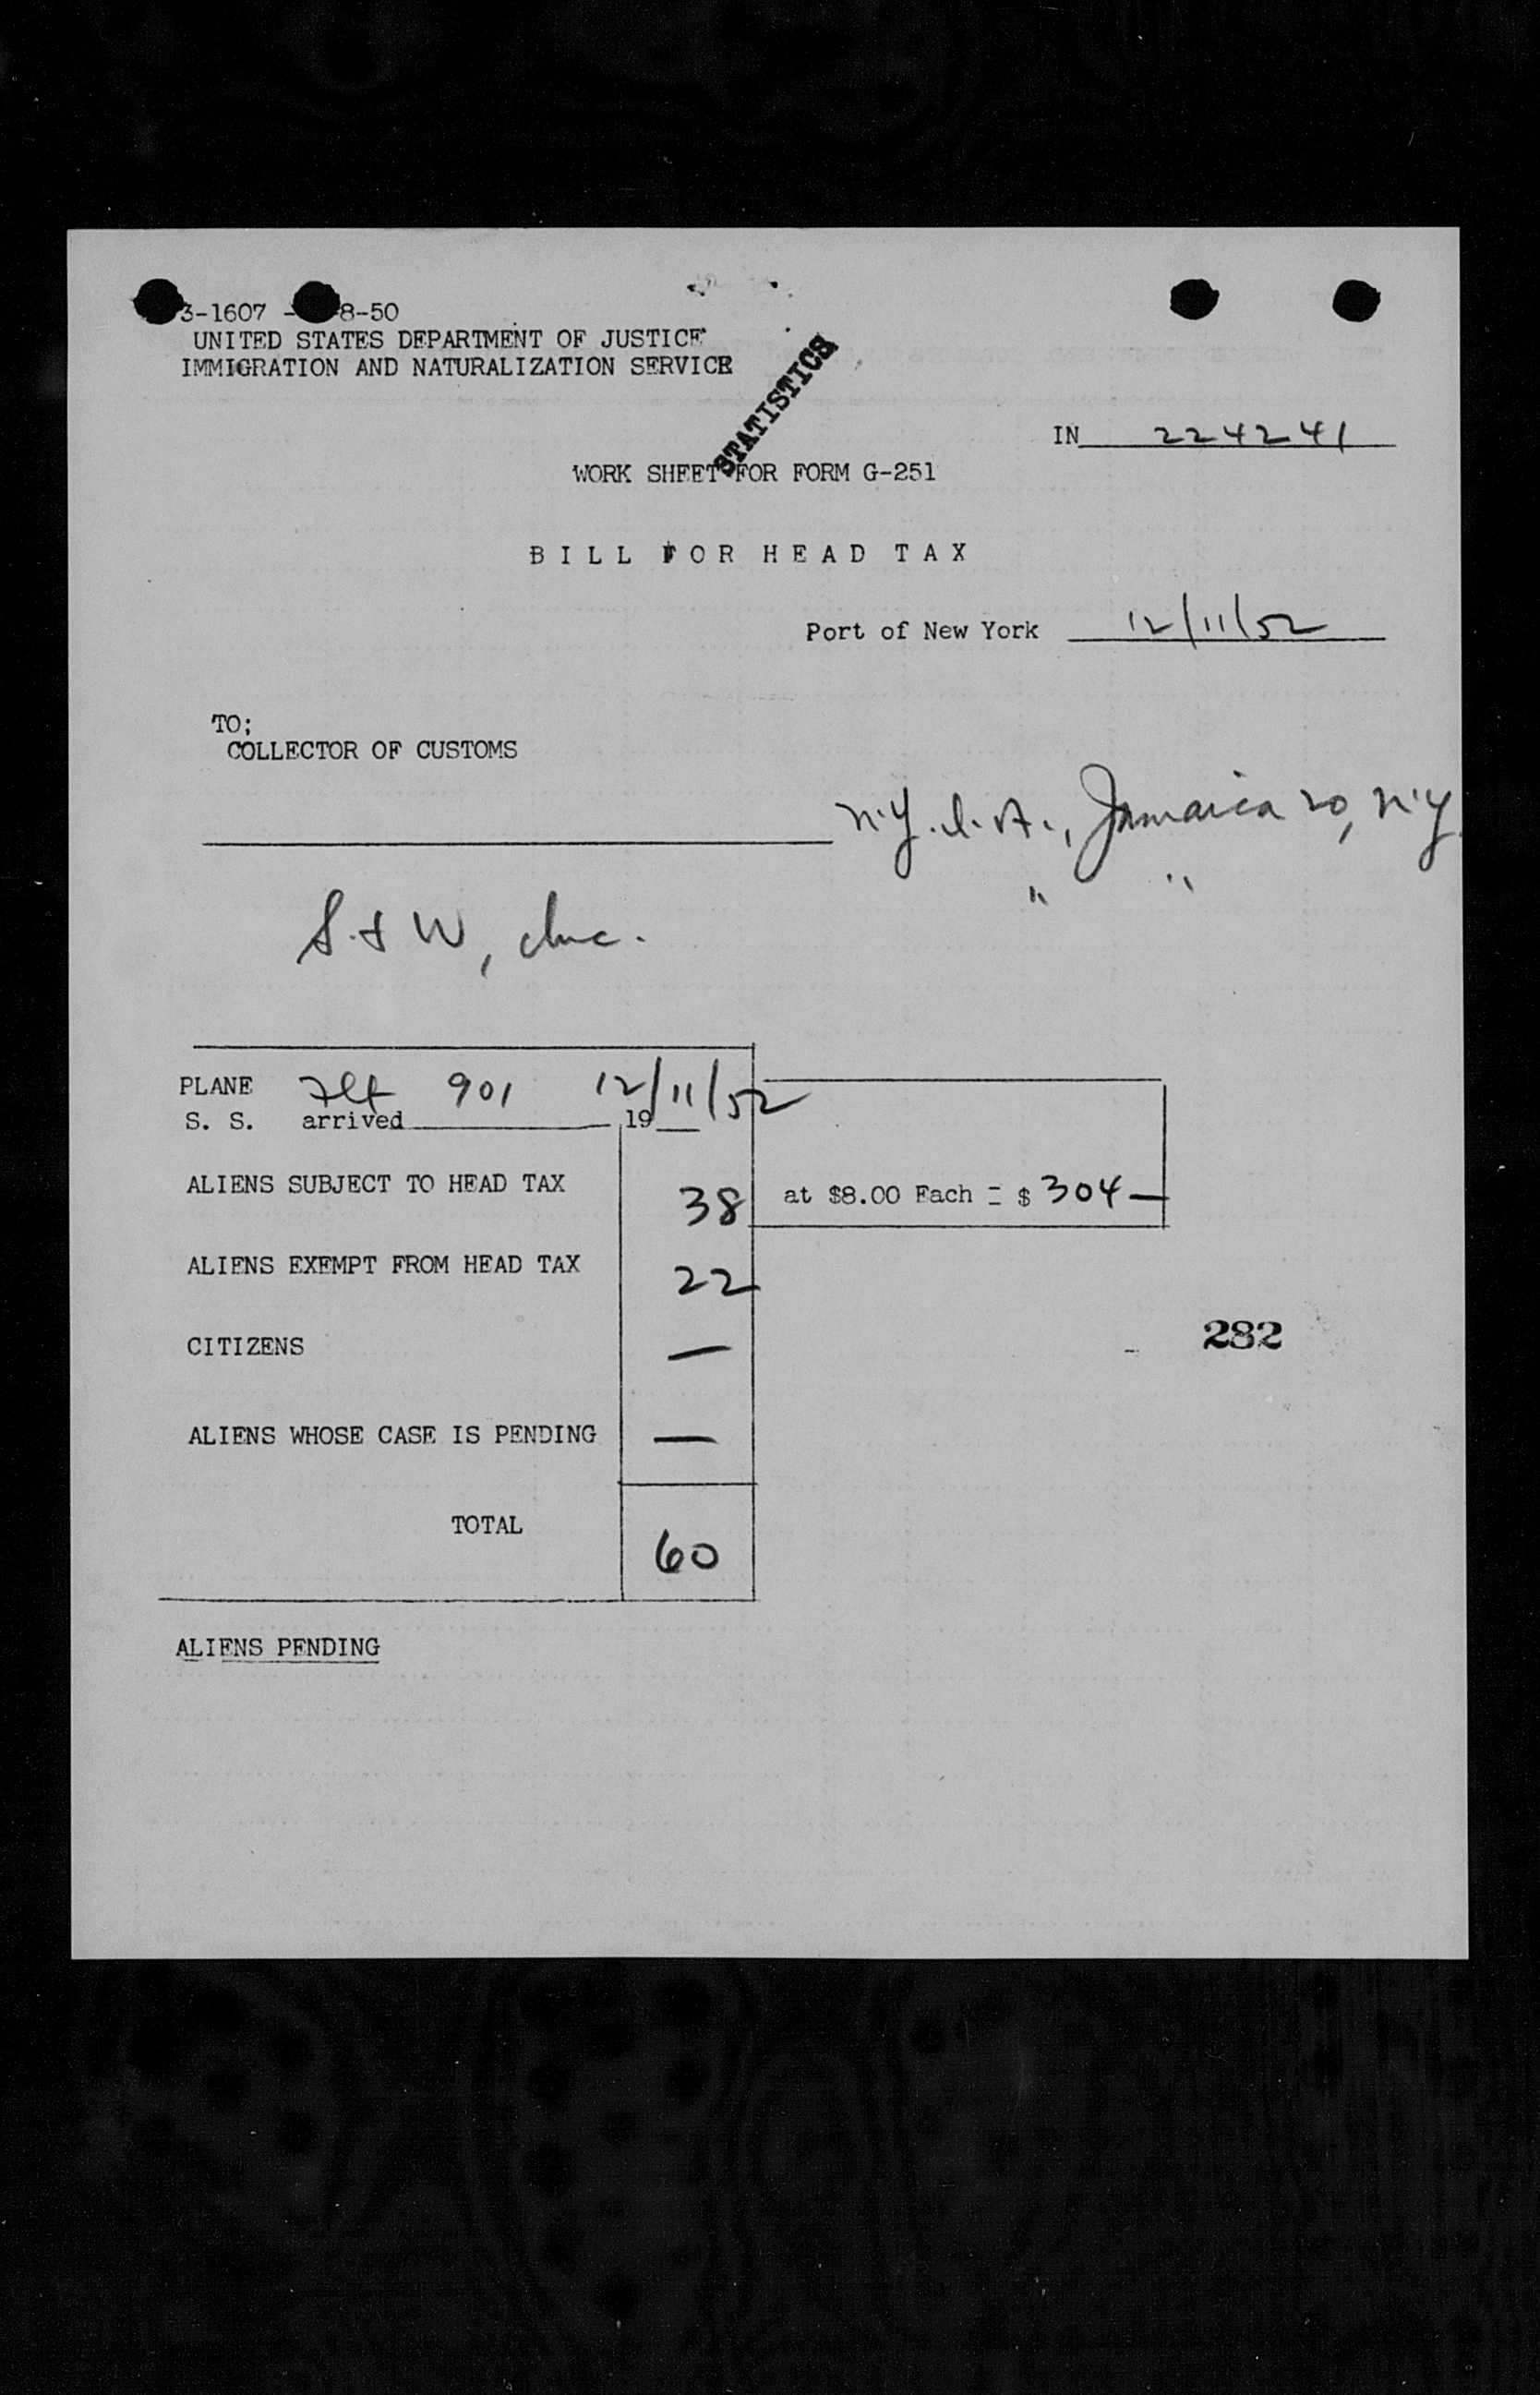 3-1607 - 8-50
UNITED STATES DEPARTMENT OF JUSTICE
IMMIGRATION AND NATURALIZATION SERVICE
STATISTICS
IN 224241
WORK SHEET FOR FORM G-251
BILL FOR HEAD TAX
Port of New York 12/11/52
TO;
COLLECTOR OF CUSTOMS
N.Y.I.A., Jamaica 20, N.Y.
" "
S. & W, Inc.
PLANE Flt 901 12/11/52
S. S. arrived 19
ALIENS SUBJECT TO HEAD TAX 38 at $8.00 Each = $ 304—
ALIENS EXEMPT FROM HEAD TAX 22
CITIZENS —
282
ALIENS WHOSE CASE IS PENDING —
TOTAL 60
ALIENS PENDING